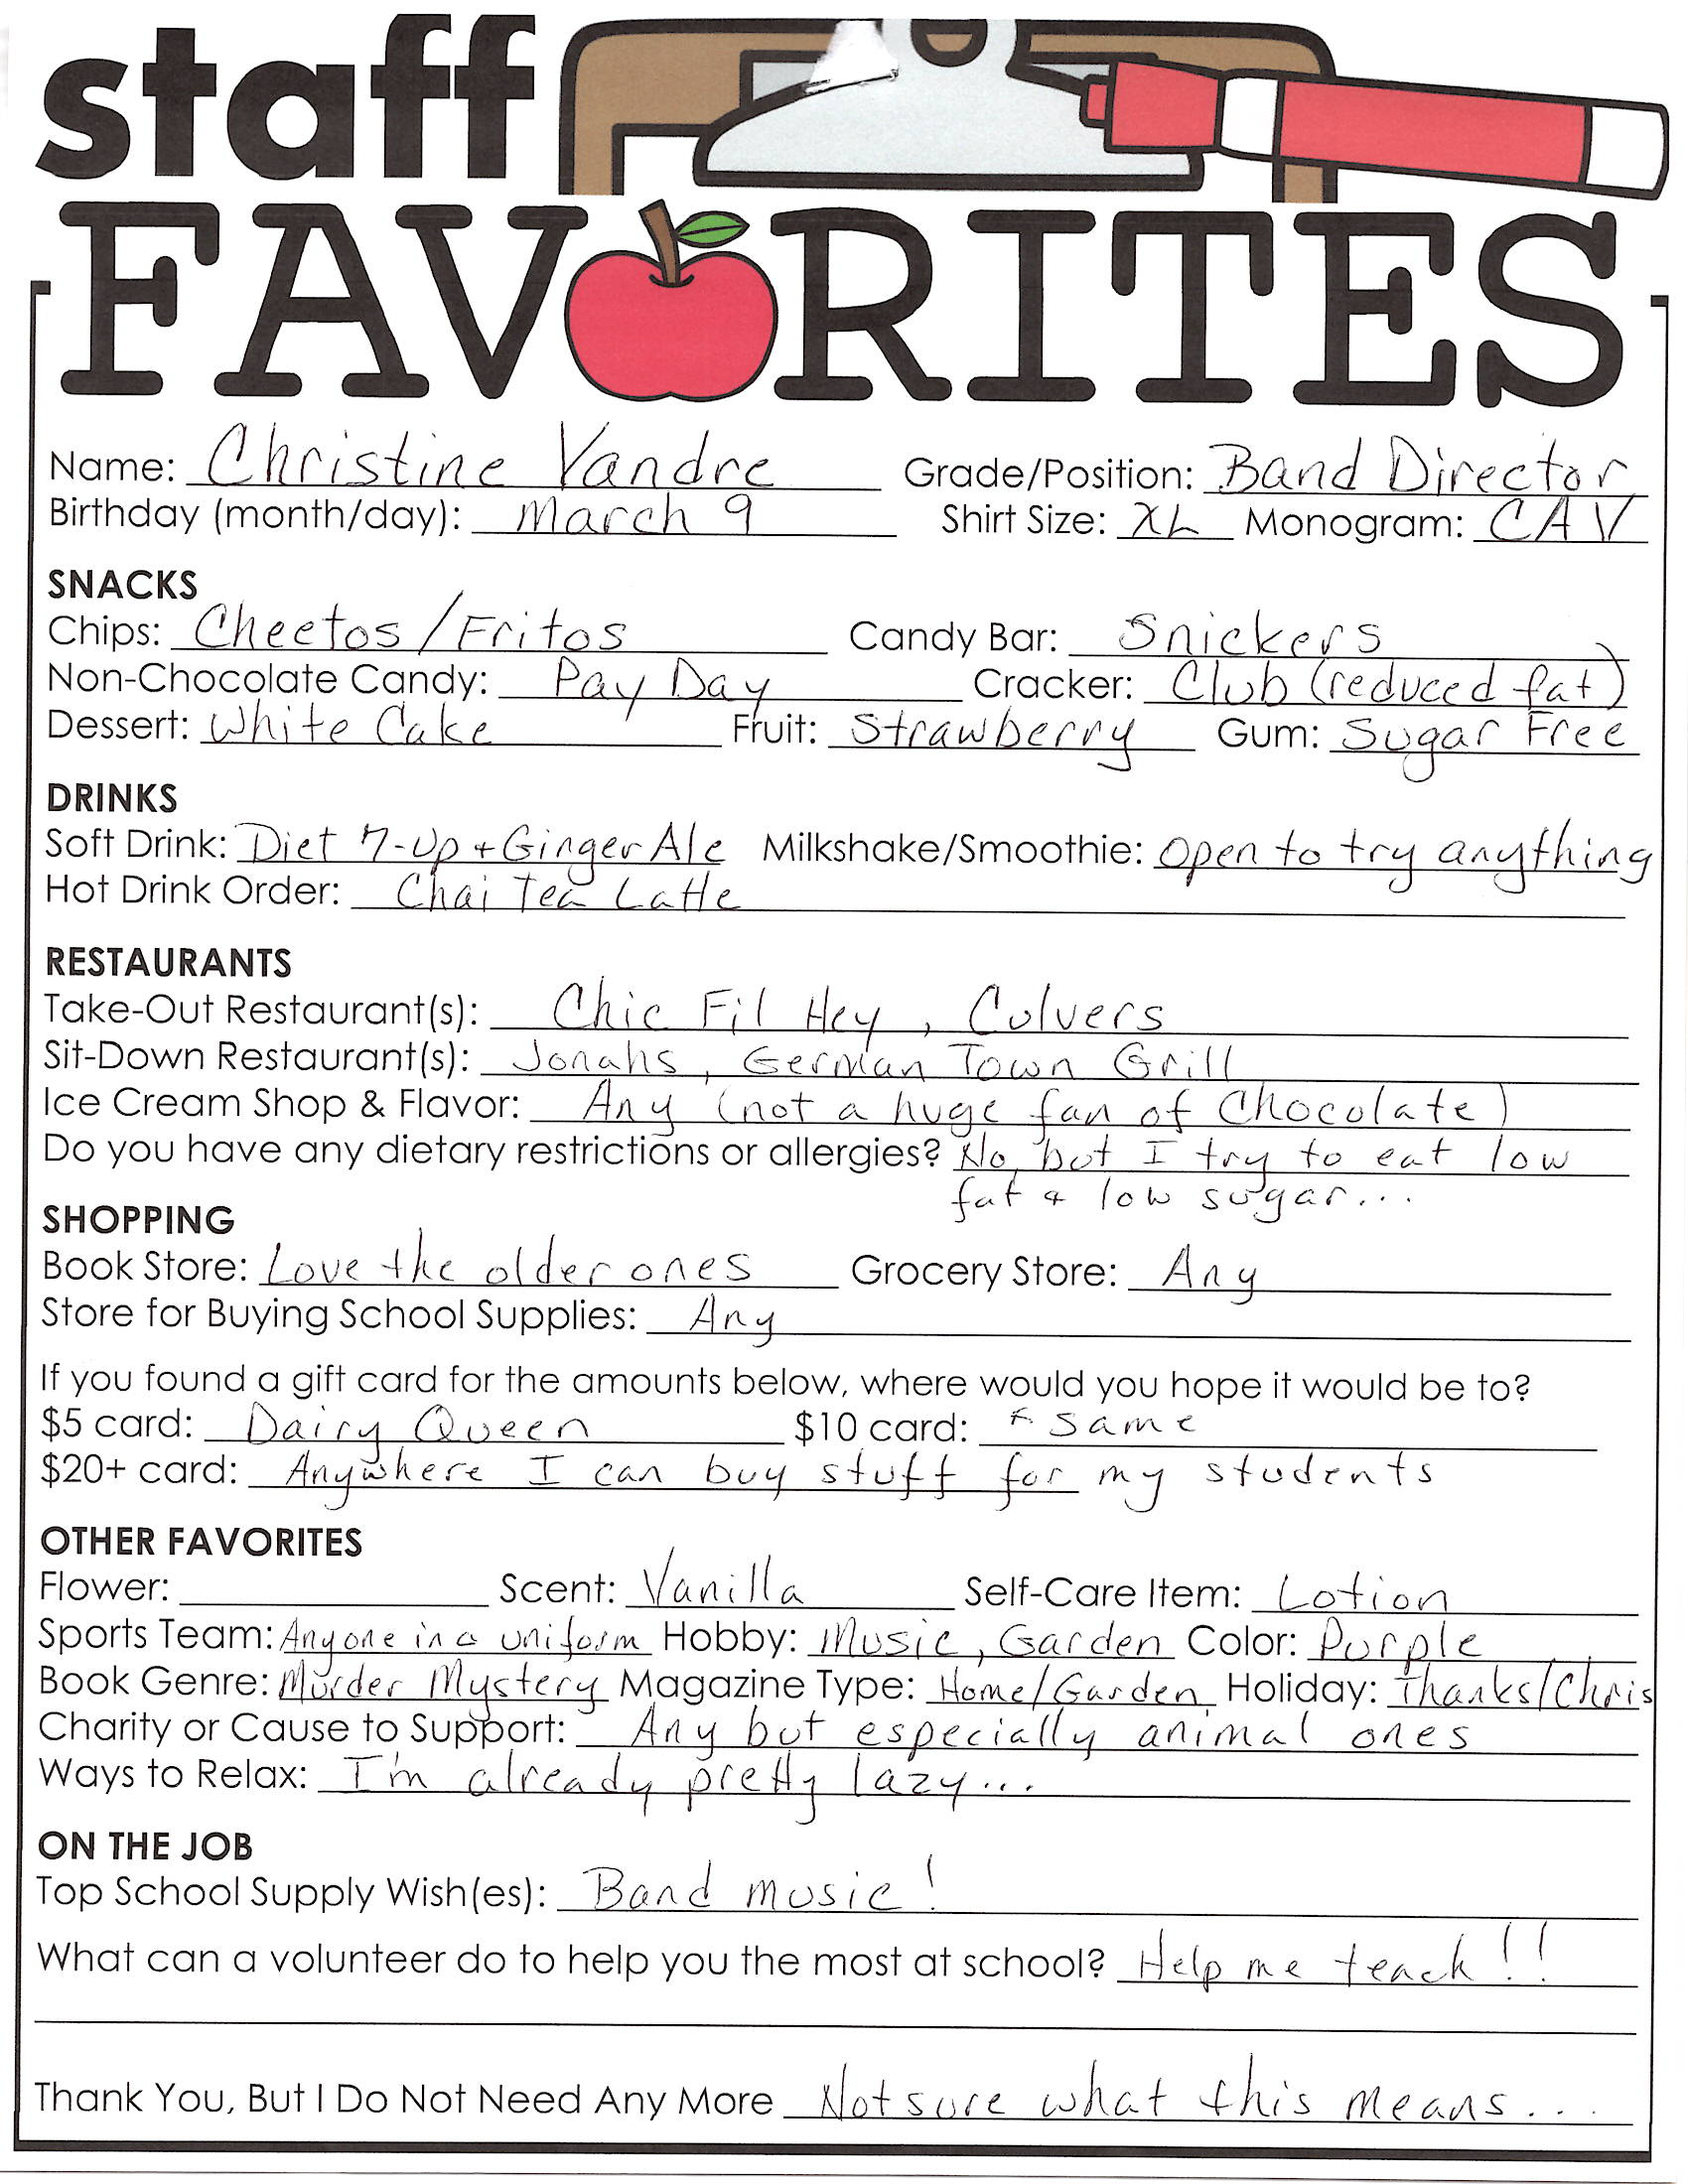 staff
FAVORITES
Name: Christine Vandre Grade/Position: Band Director
Birthday (month/day): March 9 Shirt Size: XL Monogram: CAV
SNACKS
Chips: Cheetos/Fritos Candy Bar: Snickers
Non-Chocolate Candy: Pay Day Cracker: Club (reduced fat)
Dessert: White Cake Fruit: Strawberry Gum: Sugar Free
DRINKS
Soft Drink: Diet 7-Up + Ginger Ale Milkshake/Smoothie: Open to try anything
Hot Drink Order: Chai Tea Latte
RESTAURANTS
Take-Out Restaurant(s): Chic Fil Hey, Culvers
Sit-Down Restaurant(s): Jonahs, German Town Grill
Ice Cream Shop & Flavor: Any (not a huge fan of Chocolate)
Do you have any dietary restrictions or allergies? No, but I try to eat low
fat & low sugar...
SHOPPING
Book Store: Love the older ones Grocery Store: Any
Store for Buying School Supplies: Any
If you found a gift card for the amounts below, where would you hope it would be to?
$5 card: Dairy Queen $10 card: ↖ same
$20+ card: Anywhere I can buy stuff for my students
OTHER FAVORITES
Flower: Scent: Vanilla Self-Care Item: Lotion
Sports Team: Anyone in a uniform Hobby: Music, Garden Color: Purple
Book Genre: Murder Mystery Magazine Type: Home/Garden Holiday: Thanks/Chris
Charity or Cause to Support: Any but especially animal ones
Ways to Relax: I'm already pretty lazy...
ON THE JOB
Top School Supply Wish(es): Band music!
What can a volunteer do to help you the most at school? Help me teach!!
Thank You, But I Do Not Need Any More Not sure what this means...